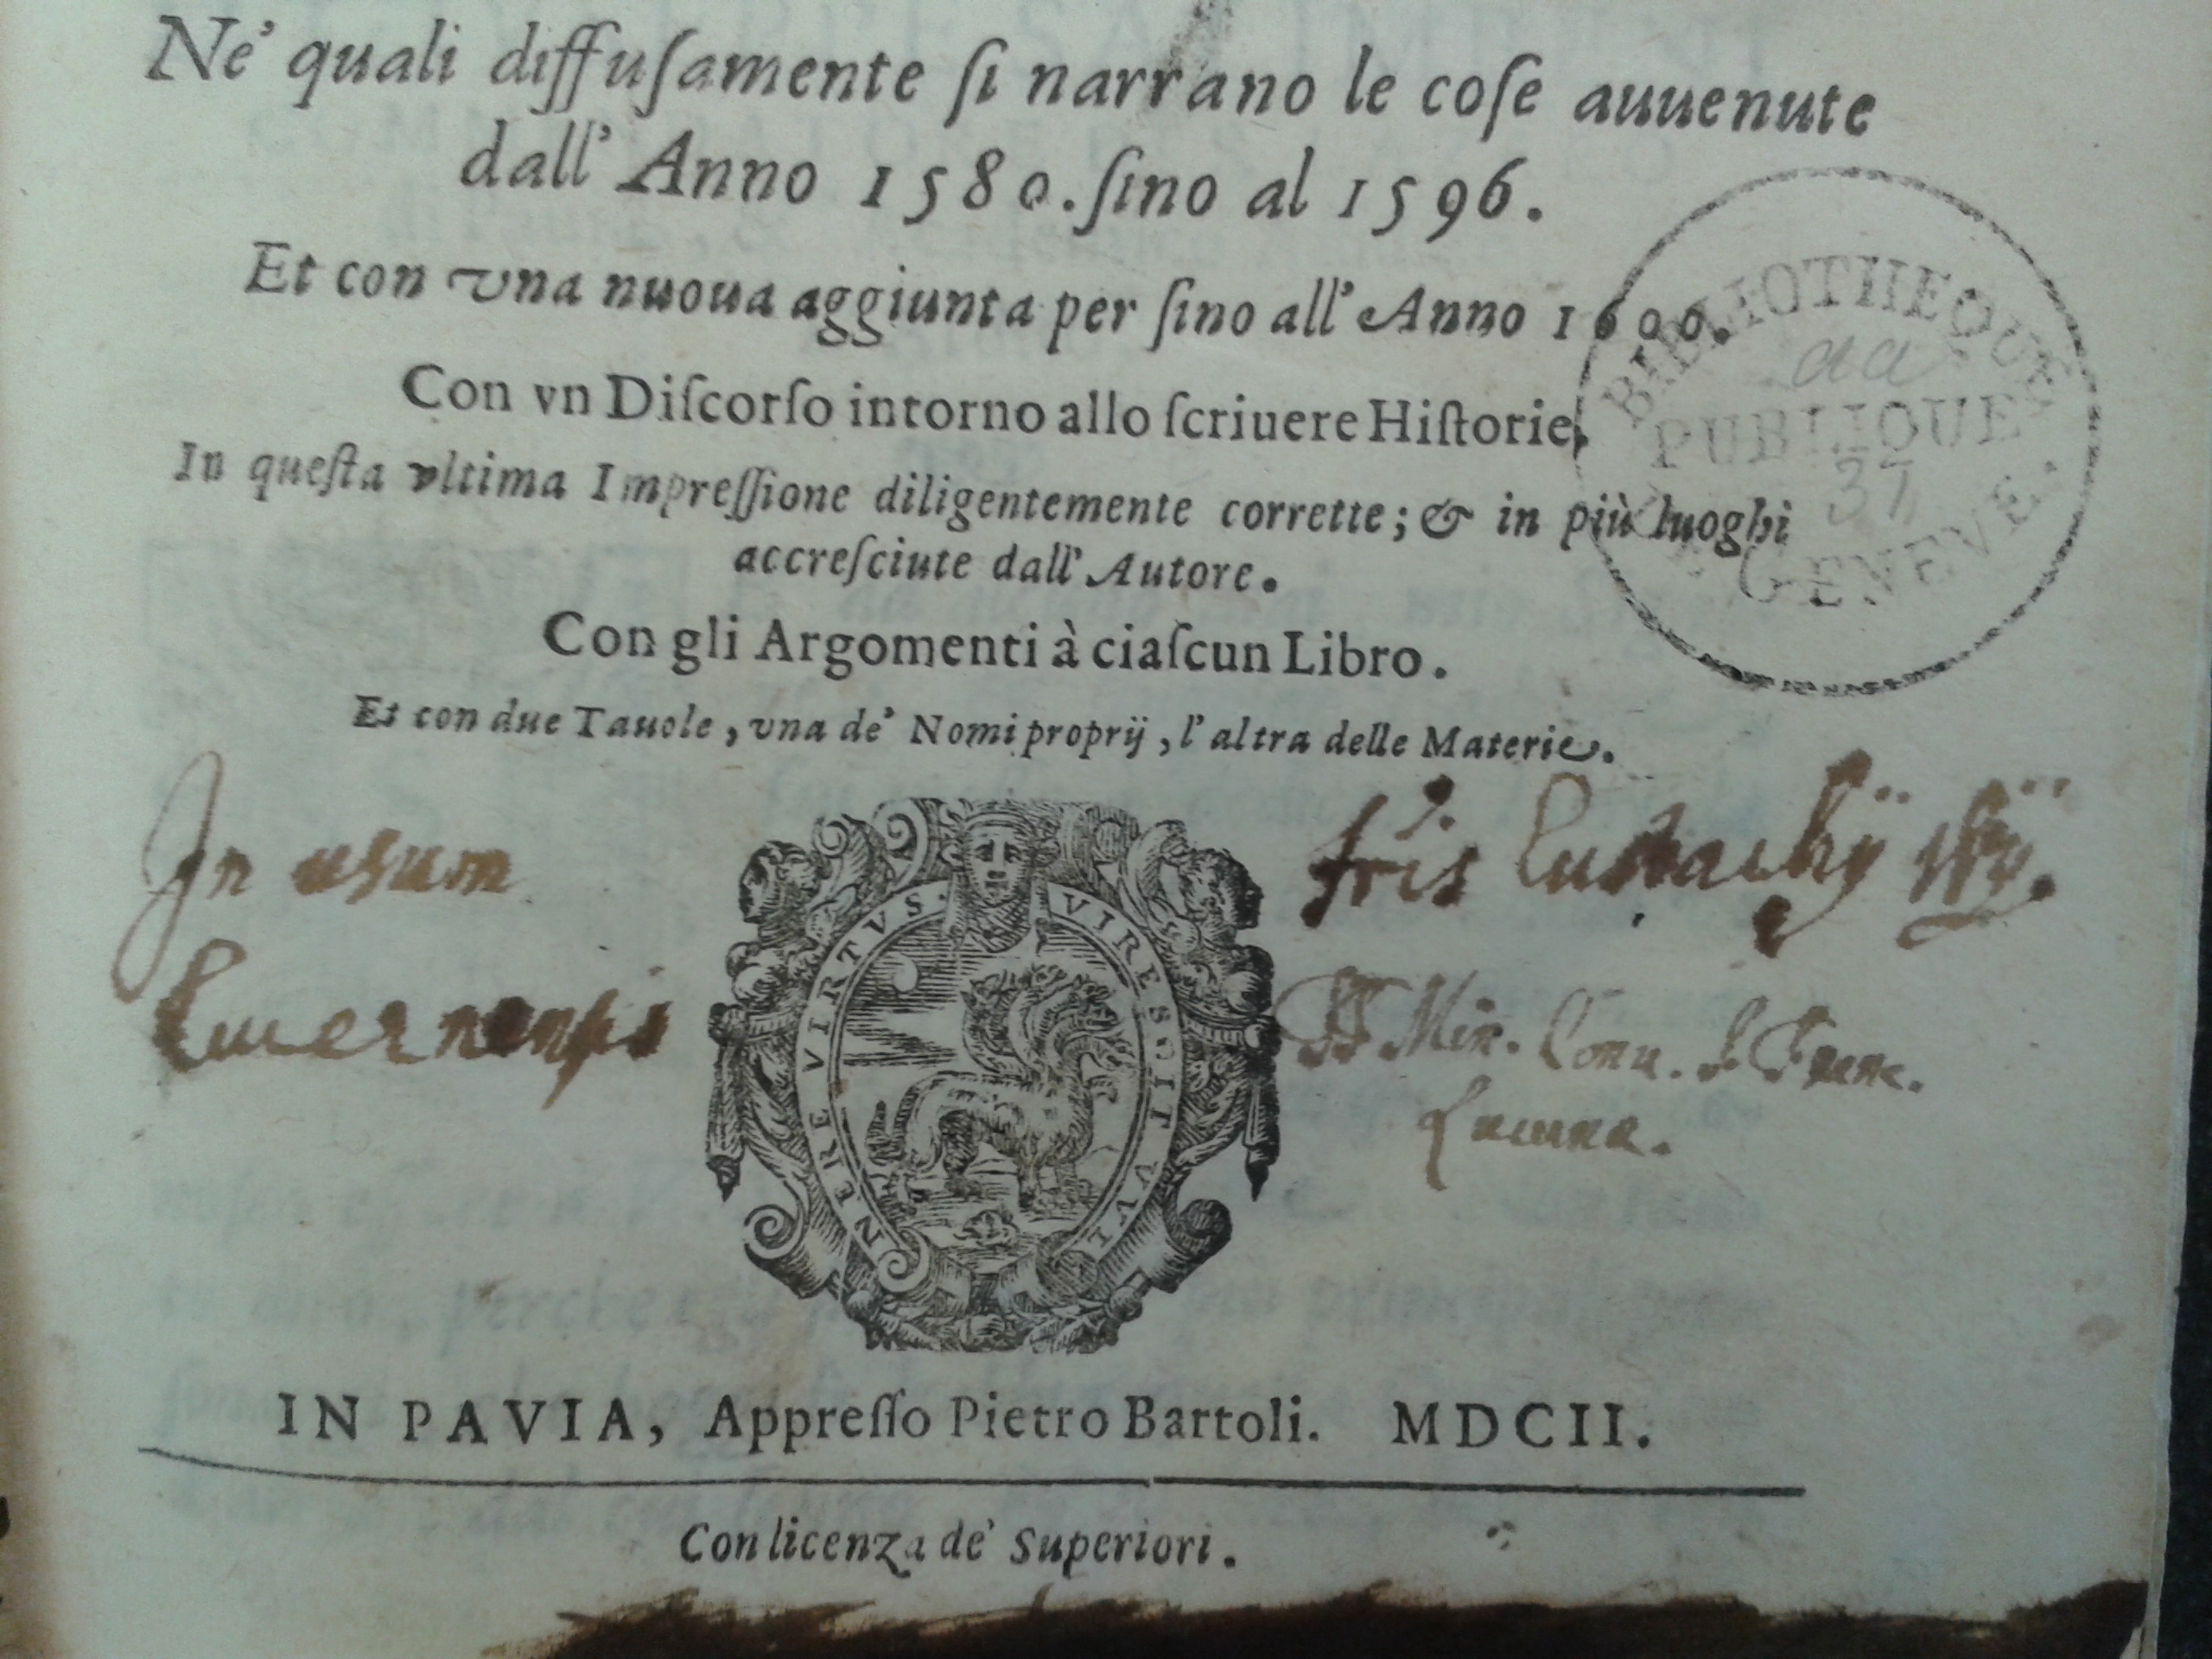 Ne' quali diffuſamente ſi narrano le coſe auuenute
dall' Anno 1580. ſino al 1596.
Et con vna nuoua aggiunta per ſino all' Anno 1600.
Con vn Diſcorſo intorno allo ſcriuere Hiſtorie.
In queſta vltima Impreſſione diligentemente corrette; & in più luoghi
accreſciute dall' Autore.
Con gli Argomenti à ciaſcun Libro.
Et con due Tauole, vna de' Nomi proprij, l' altra delle Materie.
BIBLIOTHEQUE
aa
PUBLIQUE
37
DE GENEVE.
In usum
fris Eustachij
Lucernensis
Min. Conu. S Franc.
VIRESCIT VVLNERE VIRTVS.
IN PAVIA, Appreſſo Pietro Bartoli. MDCII.
Con licenza de' Superiori.